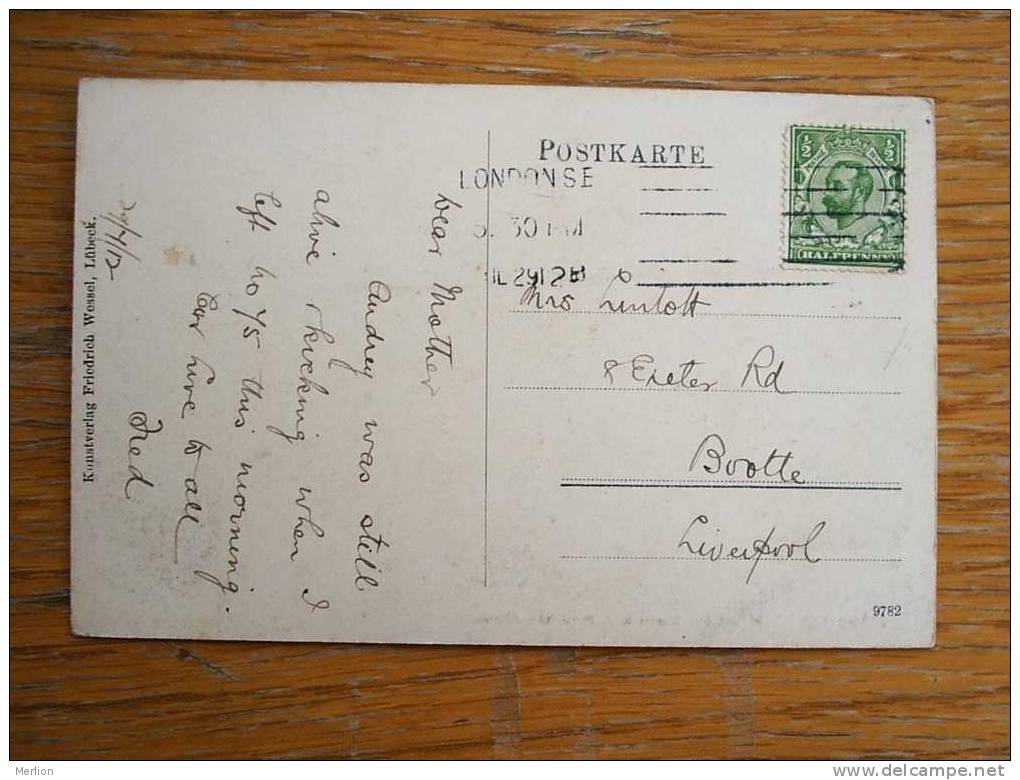 POSTKARTE
LONDON S E
30 PM
JL 29 12
½ ½
HALFPENNY
Mrs Lintott
8 Exeter Rd
Bootte
Liverpool
9782
Dear Mother
Audrey was still
alive & kicking when I
left no 45 this morning.
love to all
Fred
29/7/12
Kunstverlag Friedrich Wessel, Lübeck.
Merlion